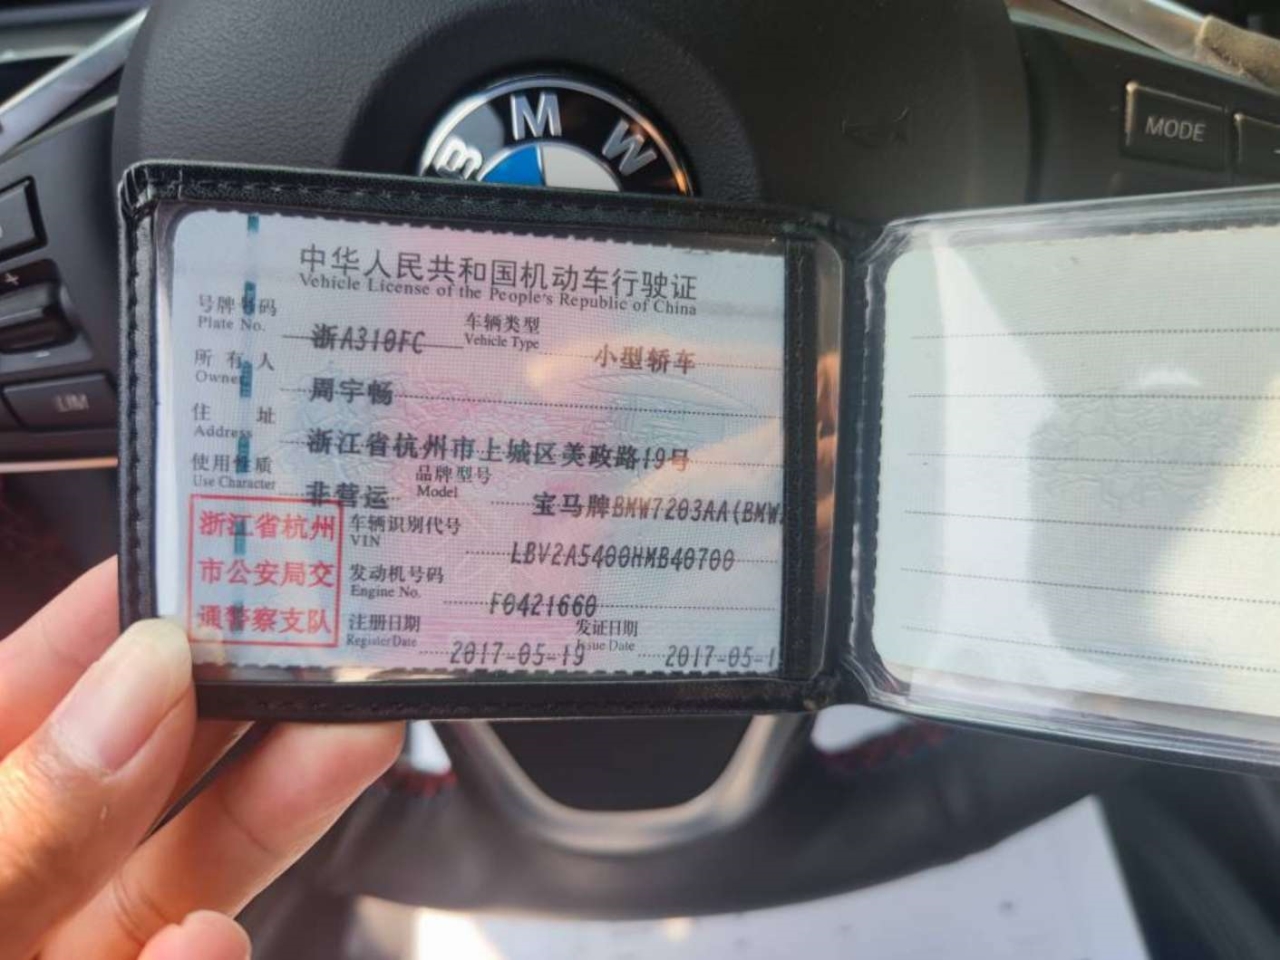 BMW
MODE
+
-
LIM
中华人民共和国机动车行驶证
Vehicle License of the People's Republic of China
号牌号码 浙A310FC 车辆类型 小型轿车
Plate No. Vehicle Type
所有人 周宇畅
Owner
住址 浙江省杭州市上城区美政路19号
Address
使用性质 非营运 品牌型号 宝马牌BMW7203AA(BMW
Use Character Model
浙江省杭州
市公安局交
通警察支队
车辆识别代号 LBV2A5400HMB40700
VIN
发动机号码 F0421660
Engine No.
注册日期 2017-05-19 发证日期 2017-05-1
Register Date Issue Date